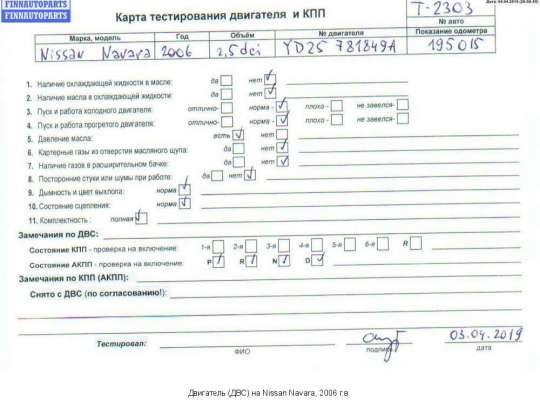 FINNAUTOPARTS
FINNAUTOPARTS
Дата: 04.04.2019
Карта тестирования двигателя и КПП
T-2303
№ авто
Марка, модель Год Объём № двигателя Показание одометра
Nissan Navara 2006 2,5 dci YD25 781849A 195015
1. Наличие охлаждающей жидкости в масле: да нет
2. Наличие масла в охлаждающей жидкости: да нет
3. Пуск и работа холодного двигателя: отлично- норма - плохо - не завелся-
4. Пуск и работа прогретого двигателя: отлично- норма - плохо - не завелся-
5. Давление масла: есть нет
6. Картерные газы из отверстия масляного щупа: да нет
7. Наличие газов в расширительном бачке: да нет
8. Посторонние стуки или шумы при работе: да нет
9. Дымность и цвет выхлопа: норма
10. Состояние сцепления: норма
11. Комплектность : полная
Замечания по ДВС:
Состояние КПП - проверка на включение: 1-я 2-я 3-я 4-я 5-я 6-я R
Состояние АКПП - проверка на включение: P R N D
Замечания по КПП (АКПП):
Снято с ДВС (по согласованию!):
Тестировал: 03.04.2019
ФИО подпись дата
Двигатель (ДВС) на Nissan Navara, 2006 г.в.